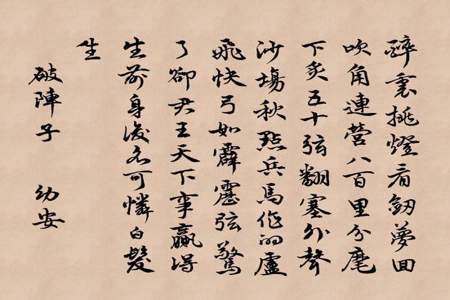 醉裏挑燈看劍夢回
吹角連營八百里分麾
下炙五十弦翻塞外聲
沙場秋點兵馬作的盧
飛快弓如霹靂弦驚
了卻君王天下事贏得
生前身後名可憐白髮
生
破陣子 幼安